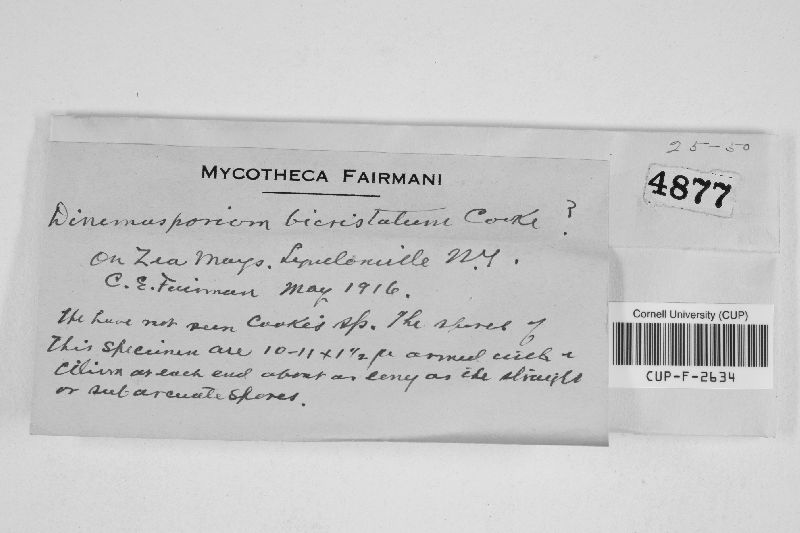 25-50
MYCOTHECA FAIRMANI
4877
Dinemasporium bicristatum Cooke ?
On Zea Mays. Lyndonville N.Y.
C. E. Fairman May 1916.
We have not seen Cooke's sp. The spores of
this specimen are 10-11 x 1½ µ armed with a
cilium at each end about as long as the straight
or subarcuate spores.
Cornell University (CUP)
CUP-F-2634